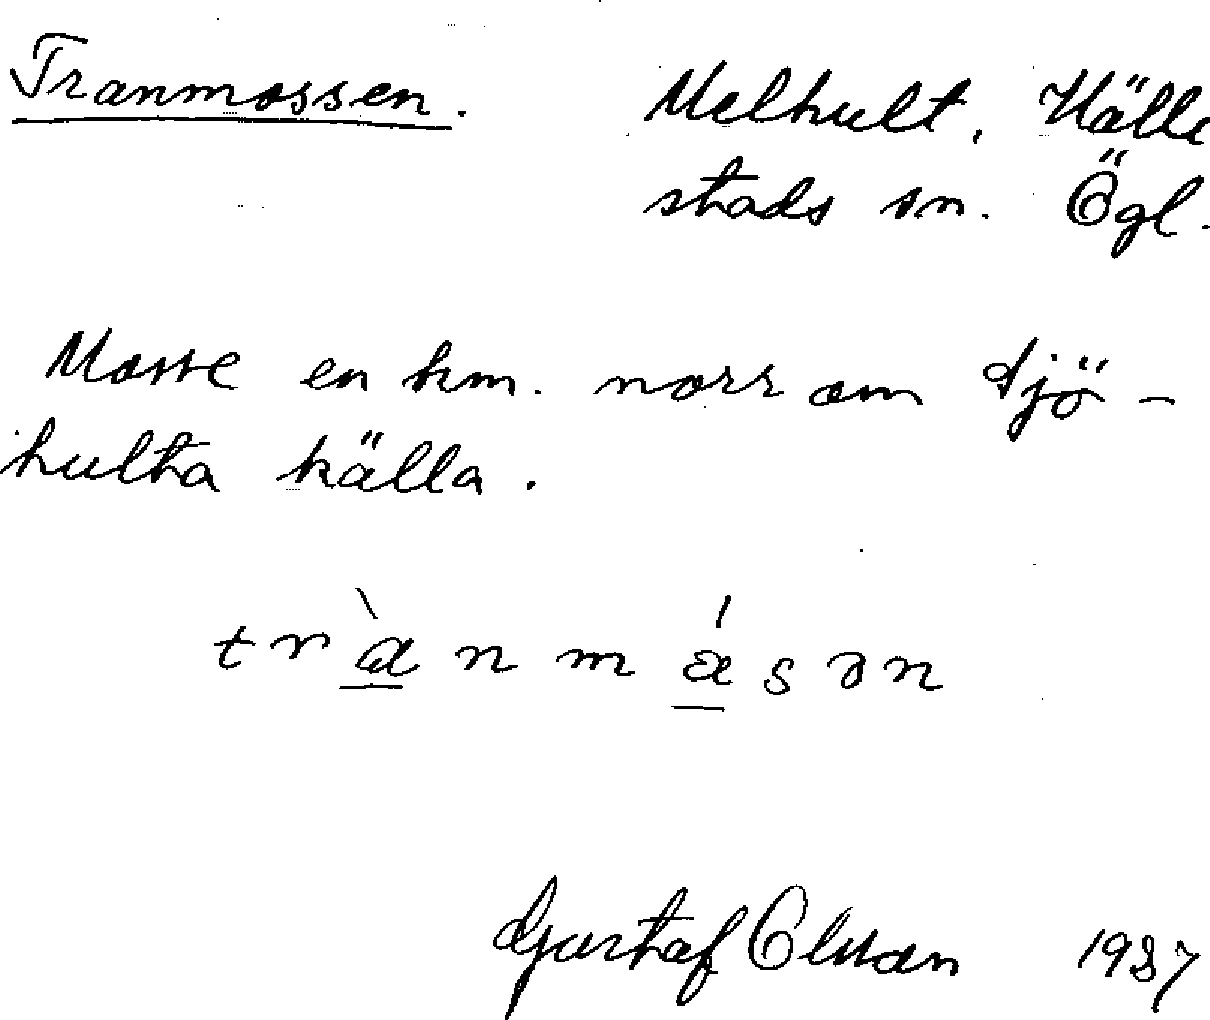 Tranmossen. Melhult, Hälle
stads sn. Ögl.
Mosse en km. norr om Sjö-
hulta källa.
trànmásən
Gustaf Olsson 1937